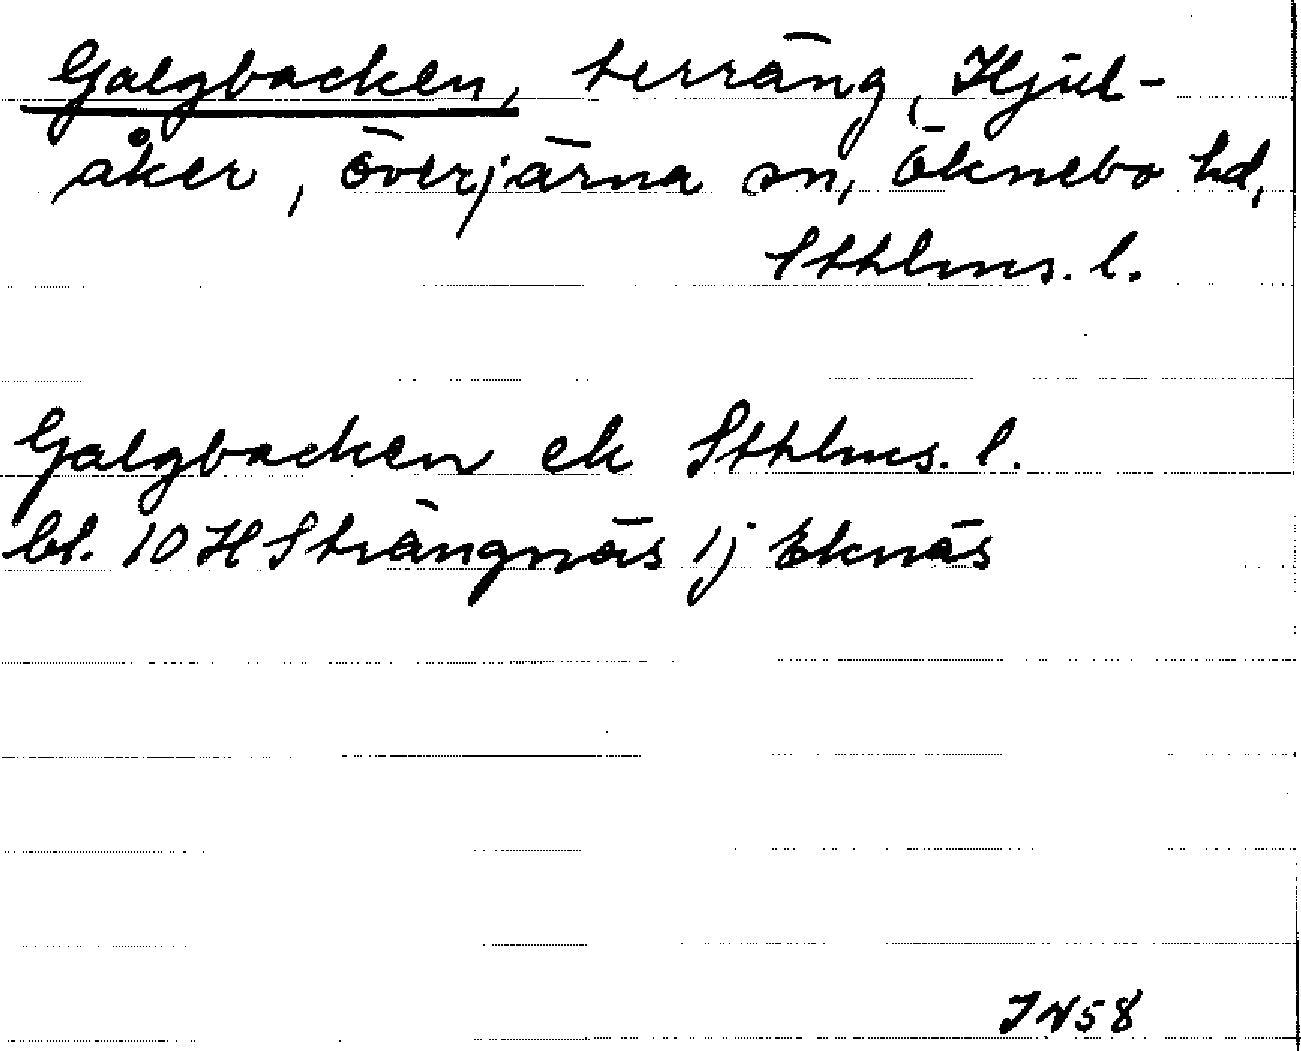 Galgbacken, terräng, Hjul-
åker, överjärna sn, Öknebo hd,
Sthlms. l.
Galgbacken ek Sthlms. l.
bl. 10 H Strängnäs 1j Eknäs